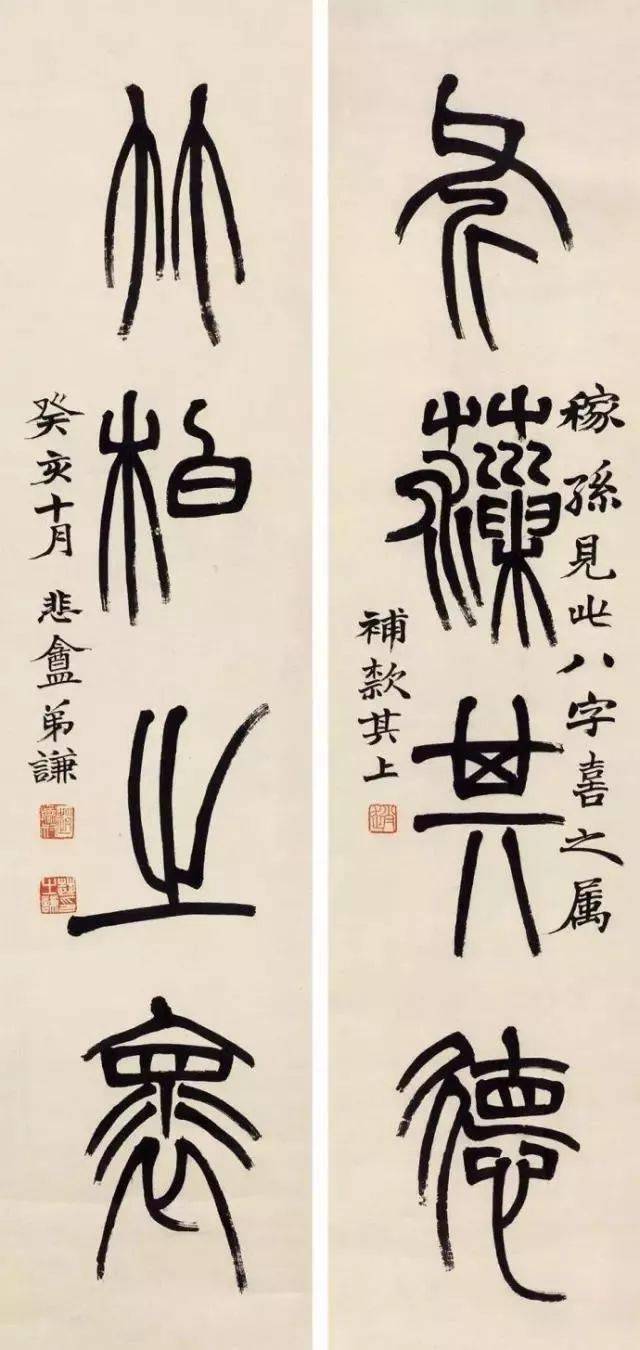 稼孫見此八字喜之属
其德
補款其上
竹柏之褱
癸亥十月悲盦弟謙